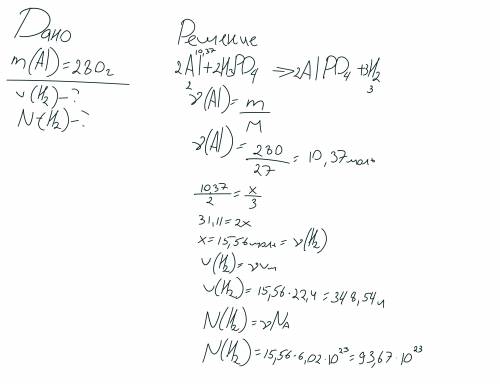 Дано
m(Al)=280г
v(H₂)-?
N(H₂)-?
Решение
10,37
2Al+2H₃PO₄ => 2AlPO₄+3H₂
2 3
ν(Al)=m/M
ν(Al)=280/27=10,37моль
10,37/2=x/3
31,11=2x
x=15,56моль=ν(H₂)
v(H₂)=νVм
v(H₂)=15,56·22,4=348,54л
N(H₂)=νNA
N(H₂)=15,56·6,02·10²³=93,67·10²³